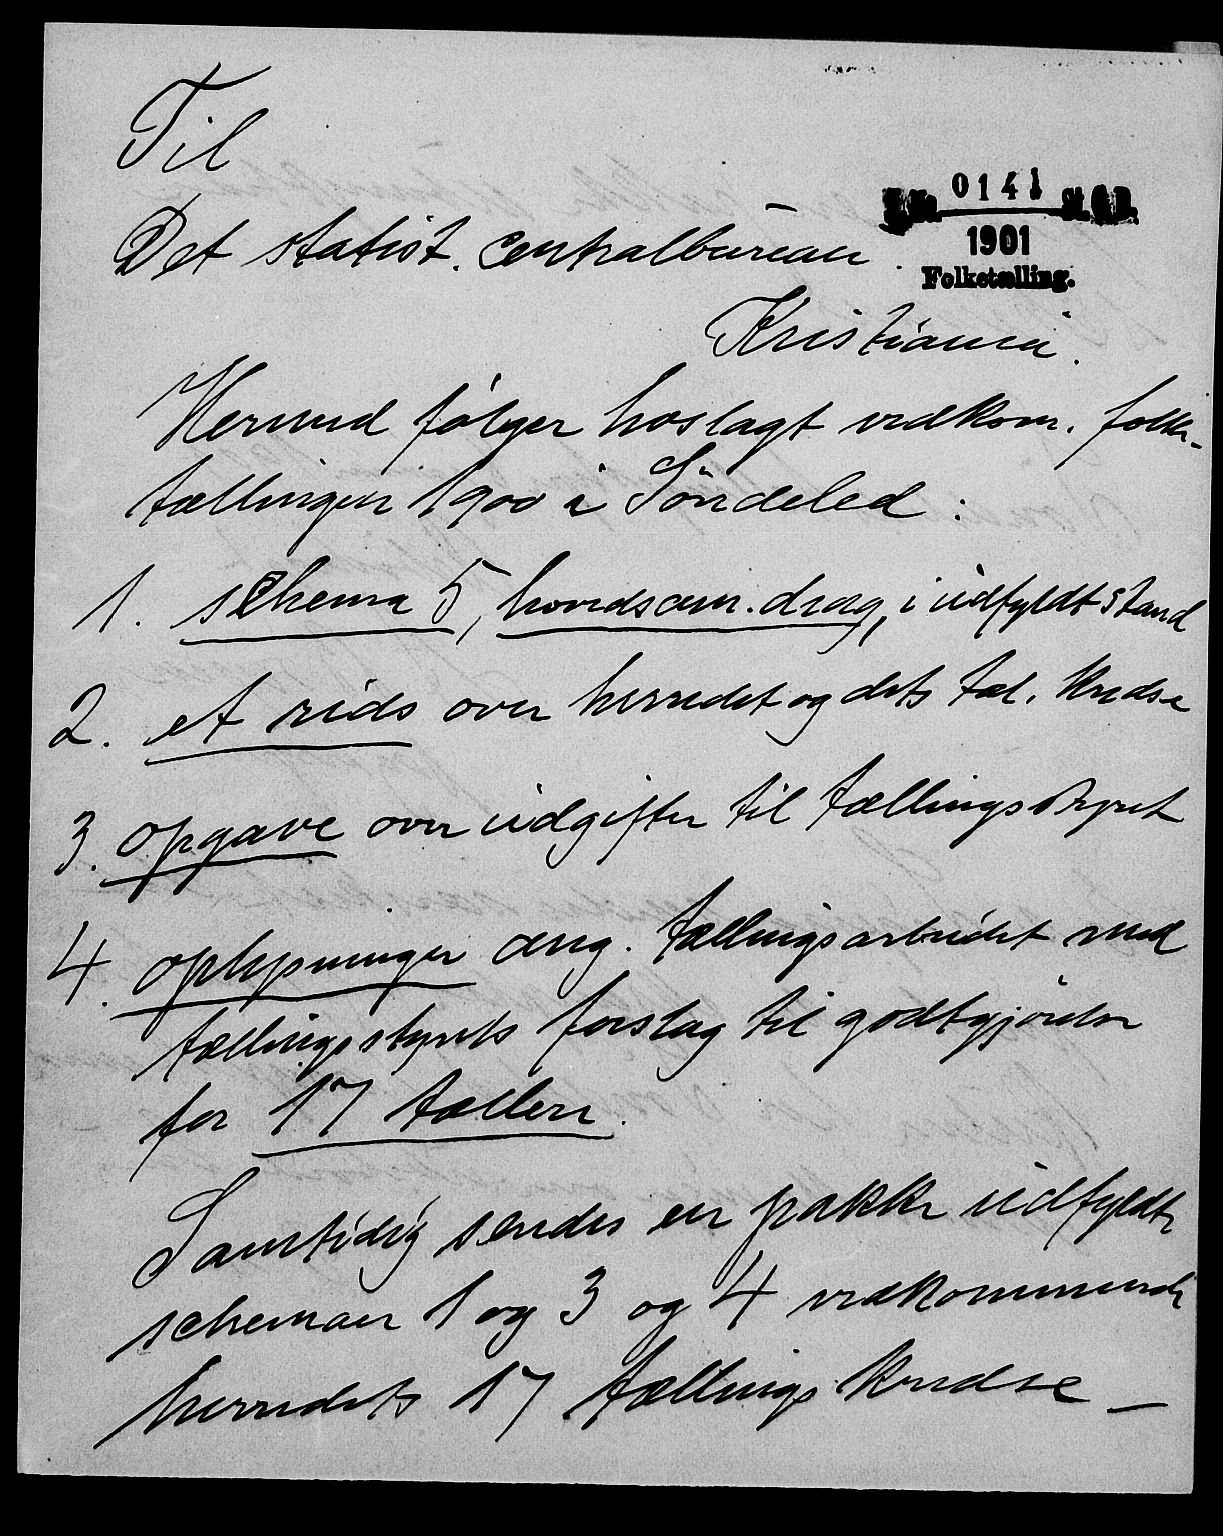 Til
J. No. 0141 St. C. B.
1901
Folketælling.
Det statist. Centralbureau.
Kristiania.
Hermed følger hoslagt vedkom. folke-
tællingen 1900 i Söndeled:
1. schema 5, hovedsam.drag, i udfyldt stand
2. et rids over herredet og dets tæl. kredse
3. opgave over udgifter til tællingsstyret
4. oplysninger ang. tællingsarbeidet med
tællingsstyrets forslag til godtgjörelse
for 17 tællere.
Samtidig sendes en pakke udfyldte
schemaer 1 og 3 og 4 vedkommende
herredets 17 tællingskredse –